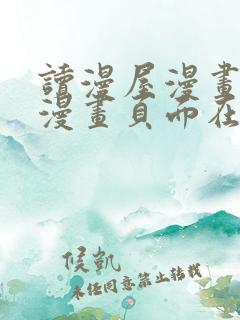 讀漫屋漫畫
漫畫頁面在
候凱
未经同意禁止转载